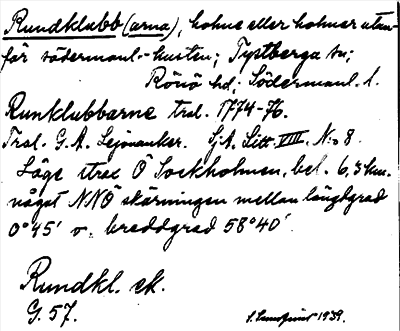 Rundklubb (arna), holme eller holmar utan-
för södermanl.-kusten; Tystberga sn;
Rönö hd; Södermanl. l.
Runklubbarne tral. 1774-76.
Tral. G. A. Lejonanker. S.A. Litt. VIII. N:o 8.
Läge strax Ö Sockholmen, bel. 6,3 km.
något NNÖ skärningen mellan längdgrad
0°45' v. breddgrad 58°40'.
Rundkl. ek.
G. 57.
1939.